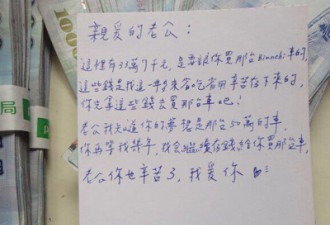 親愛的老公：
這裡有31萬7千元，是要讓你買那台Bianchi車的，
這些錢是我這一年多來省吃省用辛苦存下來的，
你先拿這些錢去買那台車吧！
老公我知道你的夢想是那台50萬的車，
你再等我幾年，我會繼續存錢給你買那台車，
老公你也辛苦了，我愛你
100
局